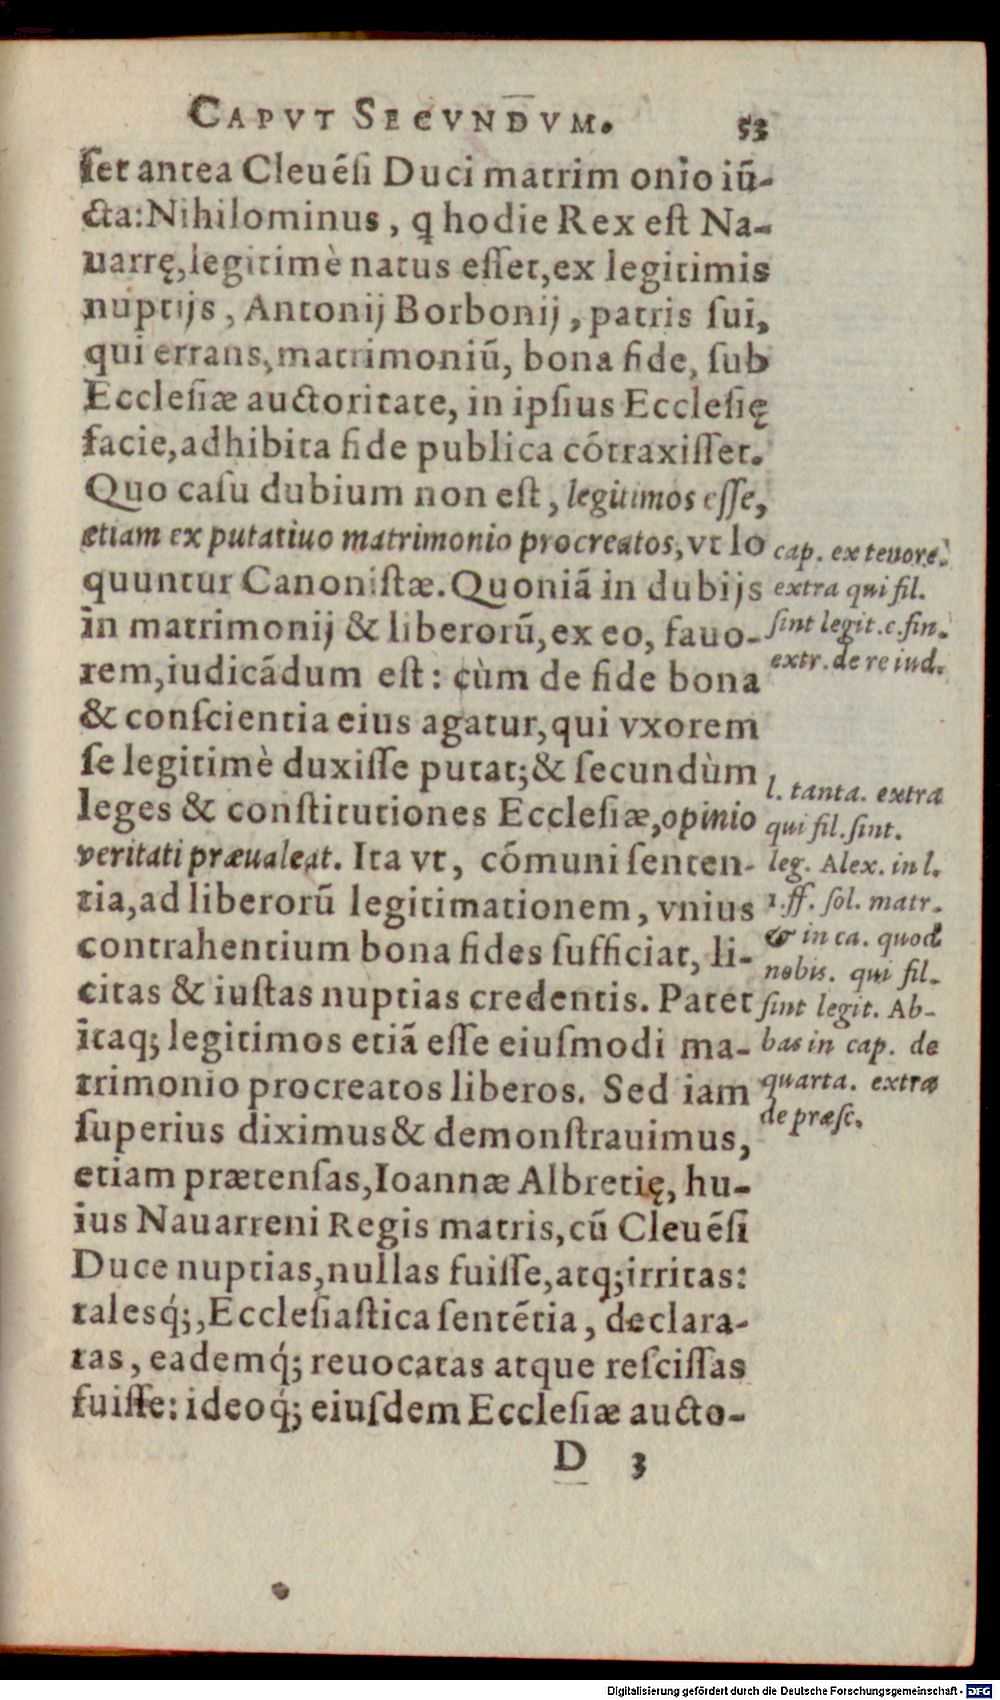 CAPVT SECVNDVM. 53
ſet antea Cleuẽſi Duci matrim onio iũ-
cta:Nihilominus, q hodie Rex eſt Na-
uarrę,legitimè natus eſſet,ex legitimis
nuptijs, Antonij Borbonij, patris ſui,
qui errans, matrimoniũ, bona fide, ſub
Eccleſiæ auctoritate, in ipſius Eccleſię
facie,adhibita fide publica cõtraxiſſet.
Quo caſu dubium non eſt, legitimos eſſe,
etiam ex putatiuo matrimonio procreatos, vt lo
quuntur Canoniſtæ. Quoniã in dubijs
in matrimonij & liberorũ, ex eo, fauo-
rem,iudicãdum eſt: cùm de fide bona
& conſcientia eius agatur,qui vxorem
ſe legitimè duxiſſe putat;& ſecundùm
leges & conſtitutiones Eccleſiæ,opinio
veritati præualeat. Ita vt, cõmuni ſenten-
tia,ad liberorũ legitimationem, vnius
contrahentium bona fides ſufficiat, li-
citas & iuſtas nuptias credentis. Patet
itaq; legitimos etiã eſſe eiuſmodi ma-
trimonio procreatos liberos. Sed iam
ſuperius diximus& demonſtrauimus,
etiam prætenſas,Ioannæ Albretię, hu-
ius Nauarreni Regis matris,cũ Cleuẽſi
Duce nuptias,nullas fuiſſe,atq;irritas:
talesq́;,Eccleſiaſtica ſentẽtia, declara-
tas, eademq́; reuocatas atque reſciſſas
fuiſſe: ideoq́; eiuſdem Eccleſiæ aucto-
D 3
cap. ex tenore.
extra qui fil.
ſint legit.c.fin.
extr. de re iud.
l. tanta. extra
qui fil. ſint.
leg. Alex. in l.
1.ff. ſol. matr.
& in ca. quod
nobis. qui fil.
ſint legit. Ab-
bas in cap. de
quarta. extra
de præſc.
Digitalisierung gefördert durch die Deutsche Forschungsgemeinschaft - DFG